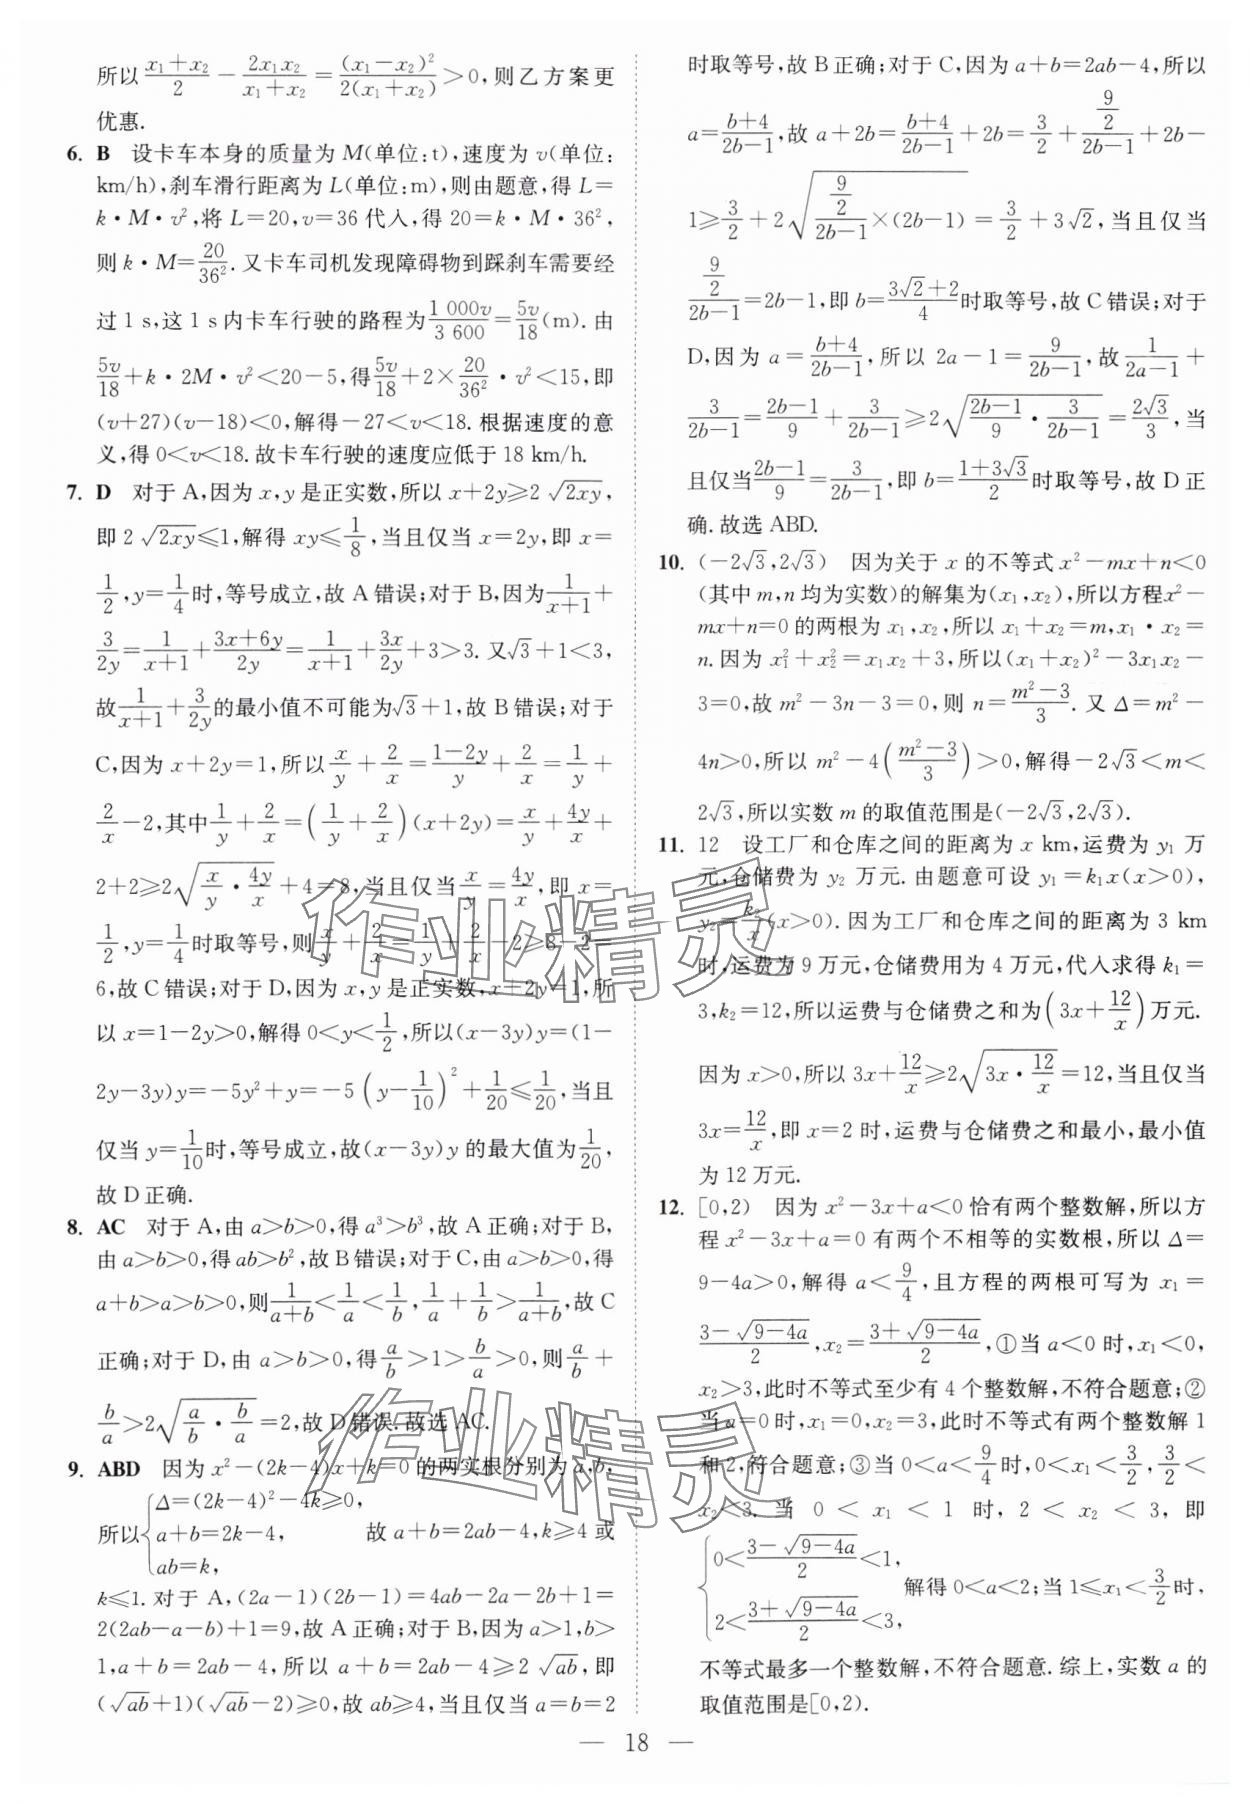 所以\frac{x₁+x₂}{2}-\frac{2x₁x₂}{x₁+x₂}=\frac{(x₁-x₂)²}{2(x₁+x₂)}>0,则乙方案更
优惠.
6. B 设卡车本身的质量为 M(单位:t),速度为 v(单位:
km/h),刹车滑行距离为 L(单位:m),则由题意,得 L=
k·M·v²,将 L=20,v=36 代入,得 20=k·M·36²,
则 k·M=\frac{20}{36²}.又卡车司机发现障碍物到踩刹车需要经
过 1 s,这 1 s 内卡车行驶的路程为\frac{1 000v}{3 600}=\frac{5v}{18}(m).由
\frac{5v}{18}+k·2M·v²<20-5,得\frac{5v}{18}+2×\frac{20}{36²}·v²<15,即
(v+27)(v-18)<0,解得-27<v<18.根据速度的意
义,得 0<v<18.故卡车行驶的速度应低于 18 km/h.
7. D 对于 A,因为 x,y 是正实数,所以 x+2y≥2\sqrt{2xy},
即 2\sqrt{2xy}≤1,解得 xy≤\frac{1}{8},当且仅当 x=2y,即 x=
\frac{1}{2},y=\frac{1}{4}时,等号成立,故 A 错误;对于 B,因为\frac{1}{x+1}+
\frac{3}{2y}=\frac{1}{x+1}+\frac{3x+6y}{2y}=\frac{1}{x+1}+\frac{3x}{2y}+3>3.又√3+1<3,
故\frac{1}{x+1}+\frac{3}{2y}的最小值不可能为√3+1,故 B 错误;对于
C,因为 x+2y=1,所以\frac{x}{y}+\frac{2}{x}=\frac{1-2y}{y}+\frac{2}{x}=\frac{1}{y}+
\frac{2}{x}-2,其中\frac{1}{y}+\frac{2}{x}=(\frac{1}{y}+\frac{2}{x})(x+2y)=\frac{x}{y}+\frac{4y}{x}+
2+2≥2\sqrt{\frac{x}{y}·\frac{4y}{x}}+4=8,当且仅当\frac{x}{y}=\frac{4y}{x},即 x=
\frac{1}{2},y=\frac{1}{4}时取等号,则\frac{x}{y}+\frac{2}{x}=\frac{1}{y}+\frac{2}{x}-2≥8-2=
6,故 C 错误;对于 D,因为 x,y 是正实数,x+2y=1,所
以 x=1-2y>0,解得 0<y<\frac{1}{2},所以(x-3y)y=(1-
2y-3y)y=-5y²+y=-5(y-\frac{1}{10})²+\frac{1}{20}≤\frac{1}{20},当且
仅当 y=\frac{1}{10}时,等号成立,故(x-3y)y 的最大值为\frac{1}{20},
故 D 正确.
8. AC 对于 A,由 a>b>0,得 a³>b³,故 A 正确;对于 B,
由 a>b>0,得 ab>b²,故 B 错误;对于 C,由 a>b>0,得
a+b>a>b>0,则\frac{1}{a+b}<\frac{1}{a}<\frac{1}{b},\frac{1}{a}+\frac{1}{b}>\frac{1}{a+b},故 C
正确;对于 D,由 a>b>0,得\frac{a}{b}>1>\frac{b}{a}>0,则\frac{a}{b}+
\frac{b}{a}>2\sqrt{\frac{a}{b}·\frac{b}{a}}=2,故 D 错误.故选 AC.
9. ABD 因为 x²-(2k-4)x+k=0 的两实根分别为 a,b,
所以{Δ=(2k-4)²-4k≥0,
a+b=2k-4, 故 a+b=2ab-4,k≥4 或
ab=k,
k≤1.对于 A,(2a-1)(2b-1)=4ab-2a-2b+1=
2(2ab-a-b)+1=9,故 A 正确;对于 B,因为 a>1,b>
1,a+b=2ab-4,所以 a+b=2ab-4≥2\sqrt{ab},即
(\sqrt{ab}+1)(\sqrt{ab}-2)≥0,故 ab≥4,当且仅当 a=b=2
时取等号,故 B 正确;对于 C,因为 a+b=2ab-4,所以
a=\frac{b+4}{2b-1},故 a+2b=\frac{b+4}{2b-1}+2b=\frac{3}{2}+\frac{\frac{9}{2}}{2b-1}+2b-
1≥\frac{3}{2}+2\sqrt{\frac{\frac{9}{2}}{2b-1}×(2b-1)}=\frac{3}{2}+3√2,当且仅当
\frac{\frac{9}{2}}{2b-1}=2b-1,即 b=\frac{3√2+2}{4}时取等号,故 C 错误;对于
D,因为 a=\frac{b+4}{2b-1},所以 2a-1=\frac{9}{2b-1},故\frac{1}{2a-1}+
\frac{3}{2b-1}=\frac{2b-1}{9}+\frac{3}{2b-1}≥2\sqrt{\frac{2b-1}{9}·\frac{3}{2b-1}}=\frac{2√3}{3},当
且仅当\frac{2b-1}{9}=\frac{3}{2b-1},即 b=\frac{1+3√3}{2}时取等号,故 D 正
确.故选 ABD.
10. (-2√3,2√3) 因为关于 x 的不等式 x²-mx+n<0
(其中 m,n 均为实数)的解集为(x₁,x₂),所以方程x²-
mx+n=0 的两根为 x₁,x₂,所以 x₁+x₂=m,x₁·x₂=
n.因为 x₁²+x₂²=x₁x₂+3,所以(x₁+x₂)²-3x₁x₂-
3=0,故 m²-3n-3=0,则 n=\frac{m²-3}{3}.又 Δ=m²-
4n>0,所以 m²-4(\frac{m²-3}{3})>0,解得-2√3<m<
2√3,所以实数 m 的取值范围是(-2√3,2√3).
11. 12 设工厂和仓库之间的距离为 x km,运费为 y₁ 万
元,仓储费为 y₂ 万元.由题意可设 y₁=k₁x(x>0),
y₂=\frac{k₂}{x}(x>0).因为工厂和仓库之间的距离为 3 km
时,运费为 9 万元,仓储费用为 4 万元,代入求得 k₁=
3,k₂=12,所以运费与仓储费之和为(3x+\frac{12}{x})万元.
因为 x>0,所以 3x+\frac{12}{x}≥2\sqrt{3x·\frac{12}{x}}=12,当且仅当
3x=\frac{12}{x},即 x=2 时,运费与仓储费之和最小,最小值
为 12 万元.
12. [0,2) 因为 x²-3x+a<0 恰有两个整数解,所以方
程 x²-3x+a=0 有两个不相等的实数根,所以 Δ=
9-4a>0,解得 a<\frac{9}{4},且方程的两根可写为 x₁=
\frac{3-\sqrt{9-4a}}{2},x₂=\frac{3+\sqrt{9-4a}}{2},①当 a<0 时,x₁<0,
x₂>3,此时不等式至少有 4 个整数解,不符合题意;②
当 a=0 时,x₁=0,x₂=3,此时不等式有两个整数解 1
和 2,符合题意;③当 0<a<\frac{9}{4}时,0<x₁<\frac{3}{2},\frac{3}{2}<
x₂<3.当 0<x₁<1 时,2<x₂<3,即
{0<\frac{3-\sqrt{9-4a}}{2}<1,
解得 0<a<2;当 1≤x₁<\frac{3}{2}时,
2<\frac{3+\sqrt{9-4a}}{2}<3,
不等式最多一个整数解,不符合题意.综上,实数 a 的
取值范围是[0,2).
— 18 —
作业精灵
作业精灵